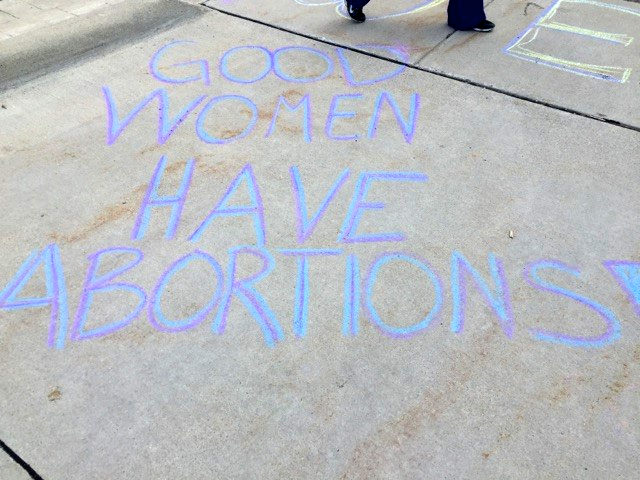 GOOD
WOMEN
HAVE
ABORTIONS